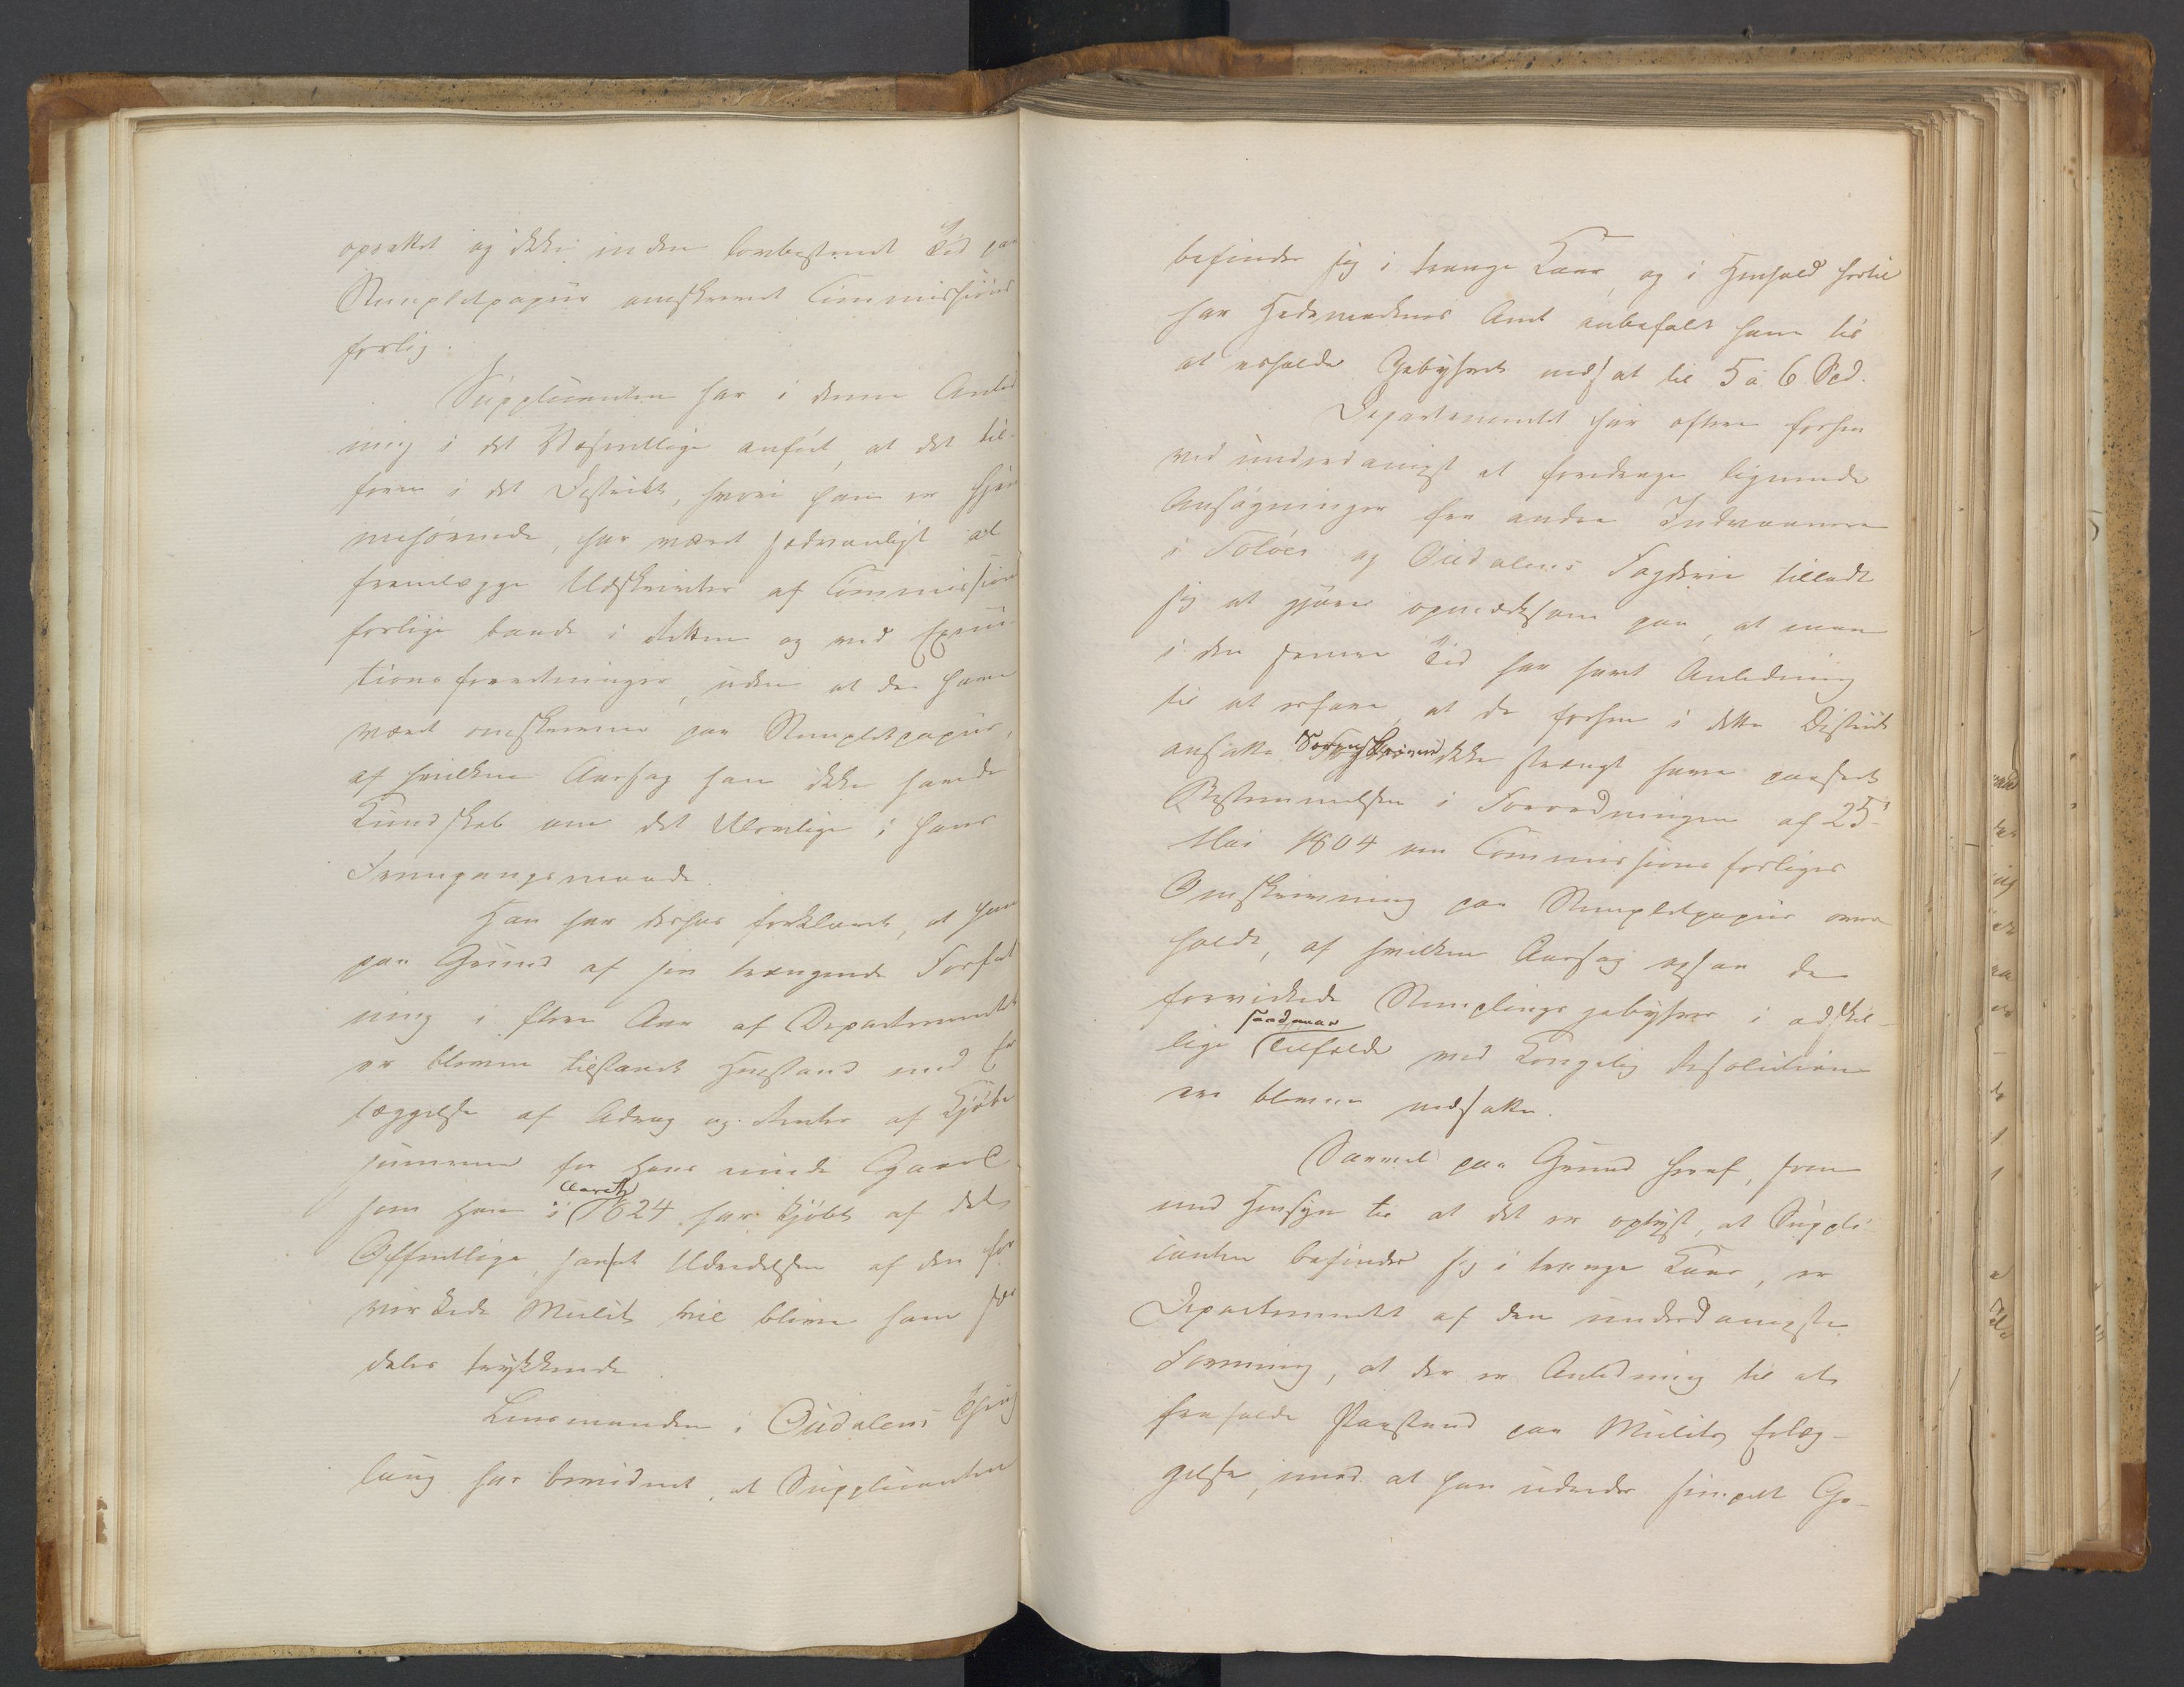 oprettet og ikke inden lovbestemt Tid paa
Stempletpapiir omskrevet Commissions
forlig.
Supplicanten har i denne Anled
ning i det Væsentlige anført, at det til-
foren i det Distrikt, hvori han er hjem
mehørende, har været sædvanligt at
fremlægge Udskrivter af Commissions
forlige baade i Retten og ved Execu-
tionsforretninger, uden at de have
været omskrevne paa Stempletpapiir,
af hvilken Aarsag han ikke havde
Kundskab om det Ulovlige i hans
Fremgangsmaade.
Han har derhos forklaret, at han
paa Grund af sin trængende Forfat
ning i flere Aar af Departementet
er bleven tilstaaet Henstand med Er
læggelse af Adrag og Renter af Kjøbe
summen for hans iboende Gaard
som han i Aaret 1824 har kjøbt af det
Offentlige, hvorhos Udredelsen af den for
virkede Mulct vil blive ham sær
deles trykkende.
Lensmanden i Oudalens Thing
laug har bevidnet, at Supplicanten
befinder sig i trange Kaar, og i Henhold hertil
har Hedemarkens Amt anbefalet ham til
at erholde Gebyhret nedsat til 5 a 6 Spd.
Departementet har oftere forhen
ved underdanigst at foredrage lignende
Ansøgninger fra andre Indvaanere
i Soløer og Oudalens Fogderie tilladt
sig at gjøre opmærksom paa, at man
i den senere Tid har havt Anledning
til at erfare, at de forhen i dette Distrikt
ansatte Sorenskrivere ikke strængt have paaseet
Bestemmelsen i Forordningen af 25de
Mai 1804 om Commissionsforliges
Omskrivning paa Stempletpapiir over-
holdt, af hvilken Aarsag ogsaa de
forvirkede Stemplings gebyhrer i adskil-
lige saadanne Tilfælde ved Kongelig Resolution
ere blevne nedsatte.
Saavel paa Grund heraf, som
med Hensyn til at det er oplyst, at Suppli
canten befinder sig i trange Kaar, er
Departementet af den underdanigste
Formening, at der er Anledning til at
frafalde Paastand paa Mulcts Erlæg-
gelse, imod at han udreder simpelt Ge-